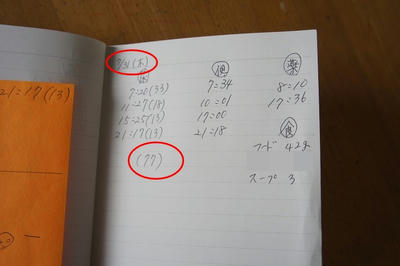 21:17(13)
(木)
水
7:20(33)
11:27(18)
15:25(13)
21:17(13)
(77)
便
7:34
10:01
17:00
21:18
薬
8:10
17:36
食
フード 42g
スープ 3